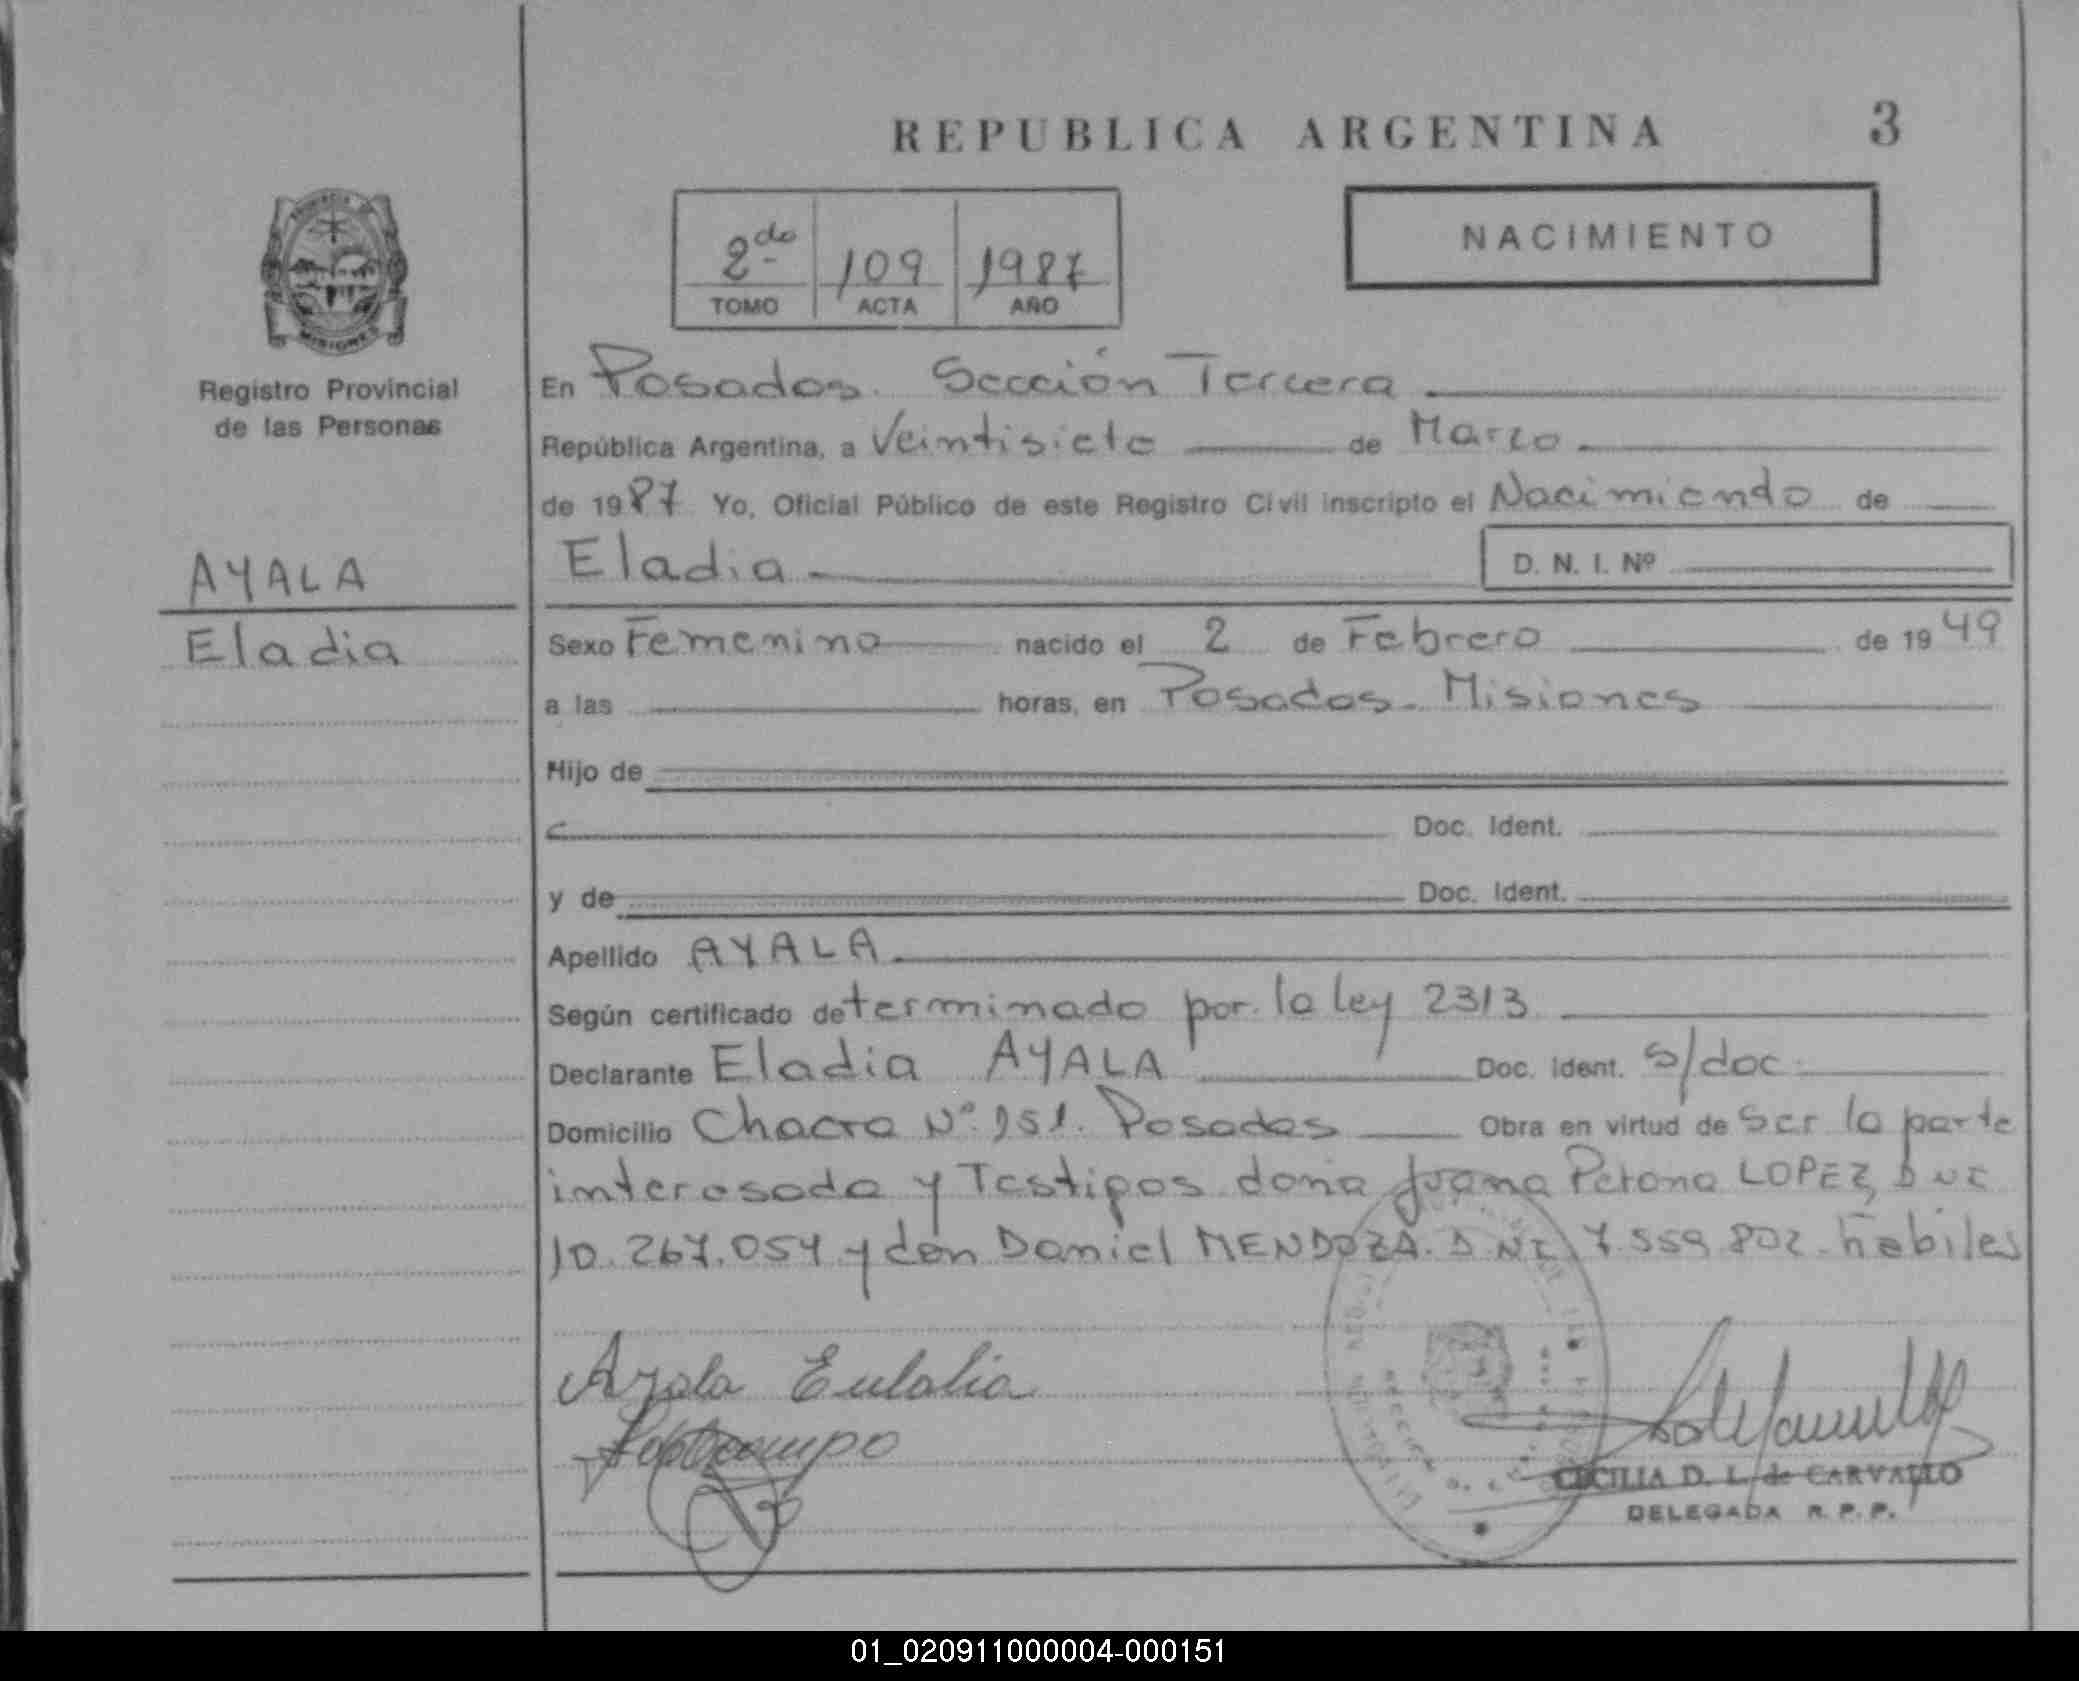 REPUBLICA ARGENTINA 3
NACIMIENTO
2do 109 1987
TOMO ACTA AÑO
MISIONES
Registro Provincial
de las Personas
AYALA
Eladia
En Posadas. Sección Tercera
República Argentina, a Veintisiete de Marzo
de 1987 Yo, Oficial Público de este Registro Civil inscripto el Nacimiendo de
Eladia D. N. I. Nº
Sexo Femenino nacido el 2 de Febrero de 1949
a las horas, en Posadas. Misiones
Hijo de
Doc. Ident.
y de Doc. Ident.
Apellido AYALA
Según certificado determinado por la ley 2313
Declarante Eladia AYALA Doc. Ident. s/doc
Domicilio Chacra Nº 151. Posadas Obra en virtud de ser la parte
interesada y Testigos doña Juana Petrona LOPEZ, DNI
10.267.054 y don Daniel MENDOZA. DNI 7.559.802. habiles
Ayala Eulalia
CECILIA D. L. de CARVALLO
DELEGADA R. P. P.
01_020911000004-000151